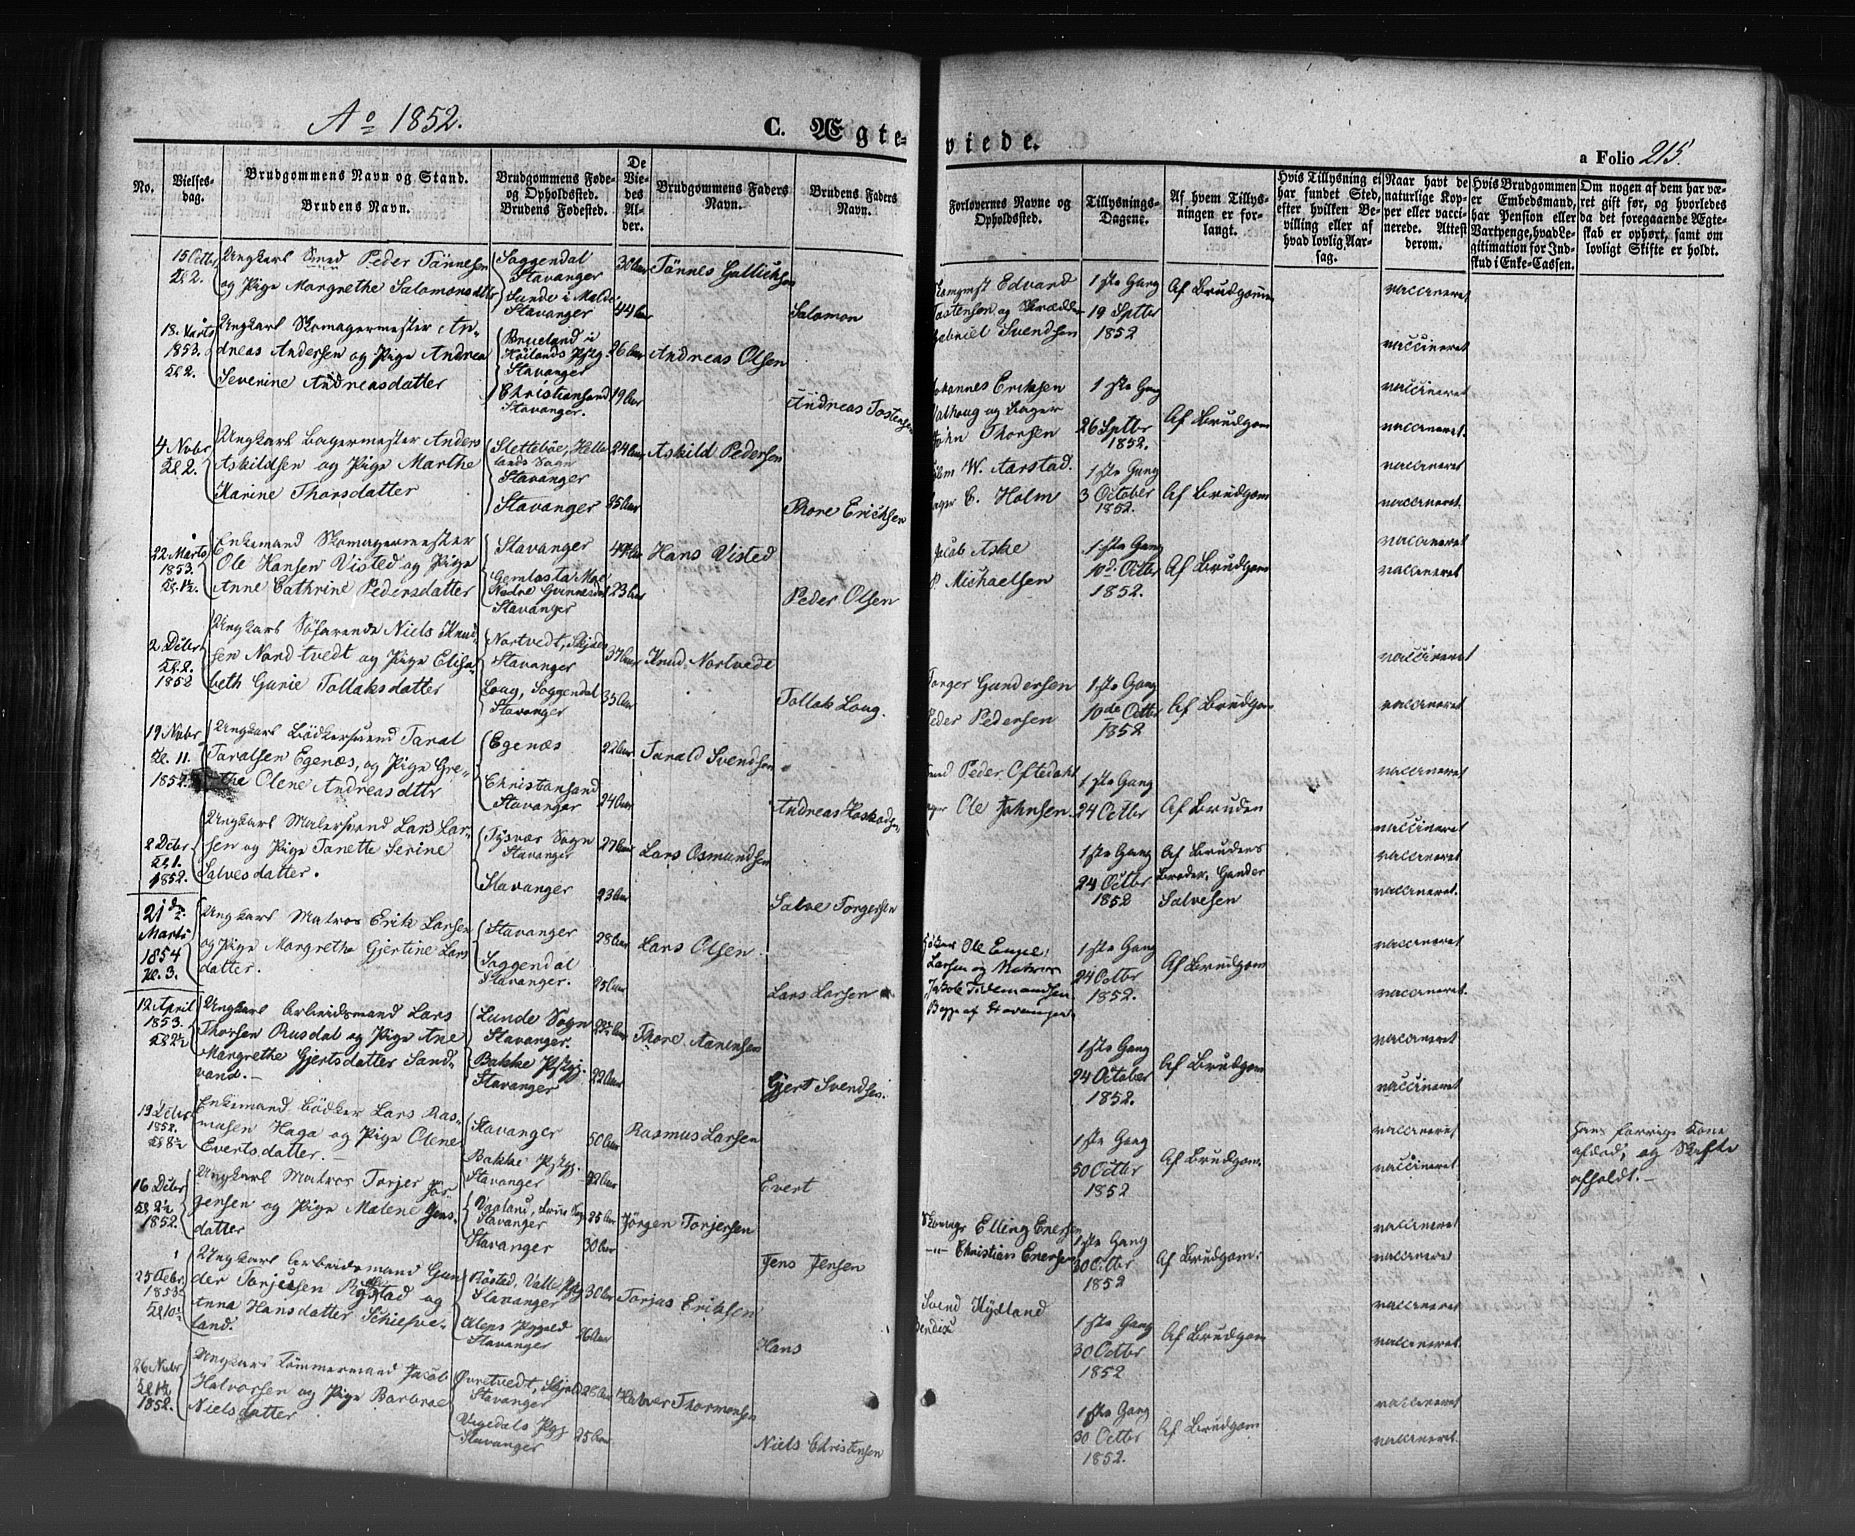 Ao 1852.
C. Ægte-
viede.
a Folio 215.
No.
Vielses-
dag.
Brudgommens Navn og Stand.
Brudens Navn.
Brudgommens Føde-
og Opholdssted.
Brudens Fødested.
De
Vie-
des
Al-
der.
Brudgommens Faders
Navn.
Brudens Faders
Navn.
Forlovernes Navne og
Opholdssted.
Tillysnings-
Dagene.
Af hvem Tillys-
ningen er for-
langt.
Hvis Tillysning ei
har fundet Sted,
efter hvilken Be-
villing eller af
hvad lovlig Aar-
sag.
Naar havt de
naturlige Kop-
per eller vacci-
nerede. Attest
derom.
Hvis Brudgommen
er Embedsmand,
har Pension eller
Vartpenge, hvad Le-
gitimation for Ind-
skud i Enke-Cassen.
Om nogen af dem har væ-
ret gift før, og hvorledes
da det foregaaende Ægte-
skab er ophørt, samt om
lovligt Skifte er holdt.
15 Octbr
Kl 2.
Ungkarl Smed Peder Tönnesen
og Pige Margrethe Salomonsdatter
Soggendal
Stavanger
Lunde i
Stavanger
30 Aar
44 Aar
Tönnes
Salomon
Edvard
Tostensen og
Gabriel Svendsen
1ste Gang
19 Sptbr
1852
Af Brudgomm
vaccineret
vaccineret
18 Marts
1853.
Kl 2.
Ungkarl Skomagermester An-
dreas Andersen og Pige Andrea
Severine Andreasdatter
Brueland i
Höilands Pstg
Stavanger
Christiansand
Stavanger.
26 Aar
19 Aar
Andreas Olsen
Andreas Tostensen
Johannes Eriksen
Valhoug og Bager
John Thorsen
1ste Gang
26 Sptbr
1852.
Af Brudgom
vaccineret
vaccineret.
4 Novbr
Kl 2.
Ungkarl Bagermester Anders
Askildsen og Pige Marthe
Karine Thorsdatter
Slettebøe, Helle-
lands Sogn
Stavanger
Stavanger
24 Aar
25 Aar
Askild Pedersen
Thore Ericksen
W. Aarstad.
C. Holm
1ste Gang
3 October
1852.
Af Brudgom
vaccineret
vaccineret.
22 Marts
1853.
Kl. 1½.
Enkemand Skomagermester
Ole Hansen Visted og Pige
Anne Cathrine Pedersdatter
Stavanger
Stavanger
23 Aar
Hans Visted
Peder Olsen
Jacob Aske
P Michaelsen
1ste Gang
10de Octbr
1852.
Af Brudgom
vaccineret
vaccineret
2 Decbr
Kl. 2.
1852
Ungkarl Söfarende Niels Knud-
sen Nordtvedt og Pige Elisa-
beth Gurie Tollaksdatter
Nortvedt,
Stavanger
Loug, Soggendal
Stavanger
37 Aar
35 Aar
Knud Nortvedt
Tollak Loug.
Torger Gundersen
Peder Pedersen
1ste Gang
10de Octbr
1852
Af Brudgom
vaccineret
vaccineret
19 Novbr
Kl. 11.
1852.
Ungkarl Bödkersvend Taral
Taralsen Egenæs, og Pige Gre-
the Olene Andreasdttr
Egenæs
Christiansand
Stavanger
22 Aar
24 Aar
Tarald Svendsen
Andreas
Peder Oftedahl
Ole Johnsen
1ste Gang
24 Octbr
Af Bruden
vaccineret
vaccineret
2 Decbr
Kl 1.
1852.
Ungkarl Malersvend Lars Lar-
sen og Pige Tanette Serine
Salvesdatter.
Tysvær Sogn
Stavanger
Stavanger
27 Aar
23 Aar
Lars Osmundsen
Salve Torgersen
1ste Gang
24 Octbr
1852
Af Brudens
Broder, Gunder
Salvesen
vaccineret
vaccineret.
21de
Marts
1854
Kl. 3.
Ungkarl Matros Erik Larsen
og Pige Margrethe Gjertine Lars
datter.
Stavanger
Soggendal
Stavanger.
28 Aar
25 Aar
Lars Olsen
Lars Larsen
Ole Engel
Larsen og Matros
Jakob Tidemandsen
Begge af Stavanger
1ste Gang
24 Octbr
1852.
Af Brudgom
vaccineret
vaccineret.
12 April
1853.
Kl 2½
Ungkarl Arbeidsmand Lars
Thorsen Rusdal og Pige Ane
Margrethe Gjertsdatter Sand-
vand.-
Lunde Sogn
Stavanger.
Bakke Pstgj.
Stavanger
22 Aar
Thore Aanensen
Gjert Svendsen.
1ste Gang
24 October
1852.
Af Brudgom
vaccineret
vaccineret
19 Decbr
1852.
Kl 8½
Enkemand Bödker Lars Ras-
musen Haga og Pige Olene
Evertsdatter.-
Stavanger
Bakke Pstgj.
Stavanger
50 Aar
Rasmus Larsen
Evert
1ste Gang
30 Octbr
1852
Af Brudgom.
vaccineret
vaccineret
Hans forrige Kone
afdød, og Skifte
afholdt.-
16 Decbr
1852.
Ungkarl Matros Torjer Jör-
gensen og Pige Malene Jens-
datter
Stavanger
Stavanger
25 Aar
30 Aar
Jörgen Torjersen
Jens Jensen
Elling Enersen
-"- Christian Enersen
1ste Gang
30 Octbr
1852
Af Brudgom:
vaccineret
vaccineret
25 Febr
1853
Ungkarl Arbeidsmand Gun
der Torjusen og
Anna Hansdatter
land.
Rösted, Valle Pstg
Stavanger
Stavanger
30 Aar
26 Aar
Torjus Eriksen
Hans
Svend Kydland
1ste Gang
30 Octbr
1852
Af Brudgom
vaccineret
vaccineret.
26 Novbr
Kl 1½
1852.
Ungkarl Tömmermand Jacob
Halvorsen og Pige Barbroe
Nielsdatter
Stavanger
Vigedals Pstgj
Stavanger
28 Aar
25 Aar
Halvor Thormonsen
Niels Christensen
1ste Gang
30 Octbr
1852.
Af Brudgom
vaccineret
vaccineret.